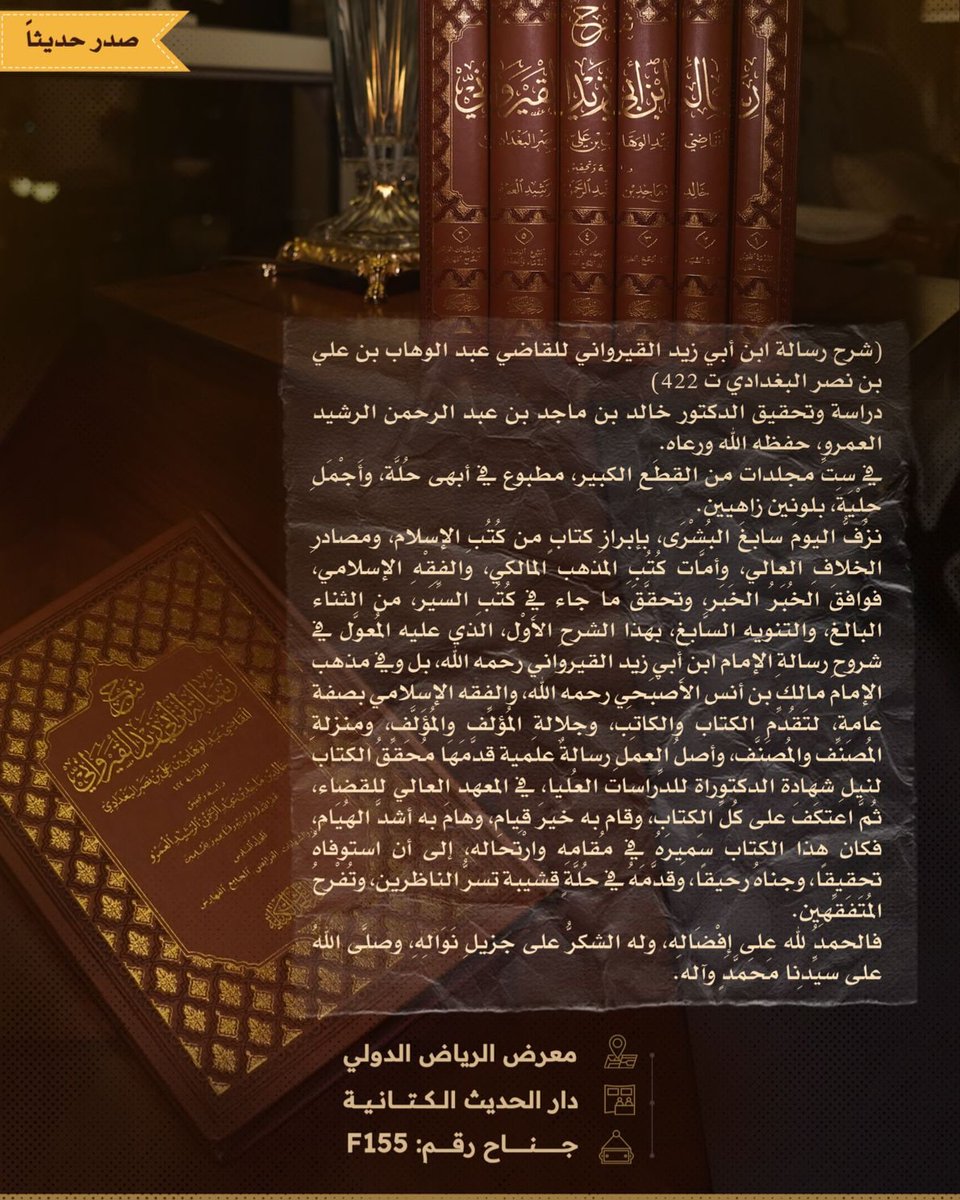 صدر حديثاً
شرح
رسالة ابن أبي زيد القيرواني
٦ ٥ ٤ ٣ ٢ ١
(شرح رسالة ابن أبي زيد القيرواني للقاضي عبد الوهاب بن علي
بن نصر البغدادي ت 422)
دراسة وتحقيق الدكتور خالد بن ماجد بن عبد الرحمن الرشيد
العمرو، حفظه الله ورعاه.
في ستِّ مجلدات من القِطَعِ الكبير، مطبوع في أبهى حلَّة، وأَجْمَلِ
حِلْيَةٍ، بلونين زاهيين.
نزُفُّ اليومَ سابغَ البُشْرَى، بإبرازِ كتابٍ من كُتُبِ الإسلام، ومصادرِ
الخلافِ العالي، وأمَّات كُتُبِ المذهب المالكي، والفِقْهِ الإسلامي،
فوافق الخُبَرُ الخَبَر، وتحقَّقَ ما جاء في كُتُب السيِّر، من الثناء
البالغ، والتنويه السَّابغ، بهذا الشرحِ الأوَّل، الذي عليه المُعوَّل في
شروحِ رسالةِ الإمام ابن أبي زيد القيرواني رحمه الله، بل وفي مذهب
الإمام مالك بن أنس الأصبحي رحمه الله، والفقه الإسلامي بصفة
عامة، لتَقَدُّمِ الكتاب والكاتب، وجلالةِ المُؤلِّف والمُؤَلَّف، ومنزلة
المُصنِّف والمُصنَّف، وأصلُ العمل رسالةٌ علمية قدَّمَهَا محققُ الكتاب
لنيل شهادة الدكتوراة للدِّراسات العُليا، في المعهد العالي للقضاء،
ثُمَّ اعتكفَ على كُلِّ الكتاب، وقام به خيرَ قيام، وهام به أشدَّ الهُيام،
فكان هذا الكتاب سميرهُ في مقامه وارْتحاله، إلى أن استوفاهُ
تحقيقًا، وجناهُ رحيقًا، وقدَّمَهُ في حلَّةٍ قشيبة تسرُّ الناظرين، وتُفْرحُ
المُتَفَقِّهين.
فالحمدُ لله على إفْضَالِهِ، وله الشكرُ على جزيلِ نَوَالِهِ، وصلى اللهُ
على سيِّدِنا مَحَمَّدٍ وآله.
معرض الرياض الدولي
دار الحديث الكتانية
جناح رقم: F155